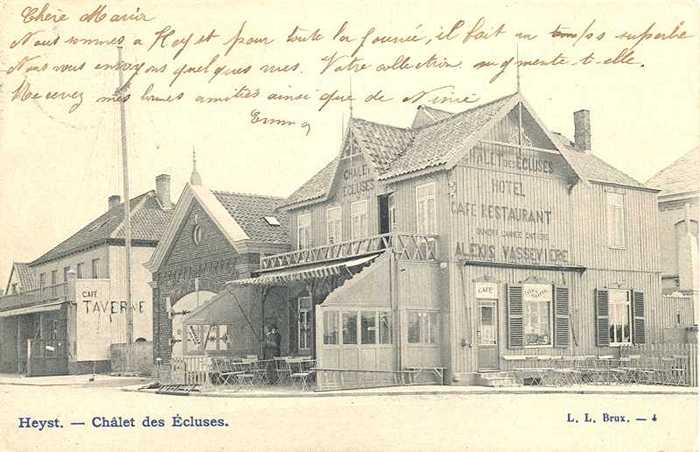 Chère Maria
Nous sommes à Heyst pour toute la journée, il fait un temps superbe
Nous vous envoyons quelques mes. Votre collection augmente-t-elle.
Recevez mes bonnes amitiés ainsi que de
CHALET
DES
ÉCLUSES
CHALET DES ÉCLUSES
HOTEL
CAFE RESTAURANT
OUVERT L'ANNÉE ENTIÈRE
ALEXIS VASSEVIÈRE
CAFÉ
TAVERNE
CAFÉ
Heyst. — Châlet des Écluses.
L. L. Brux. — 4